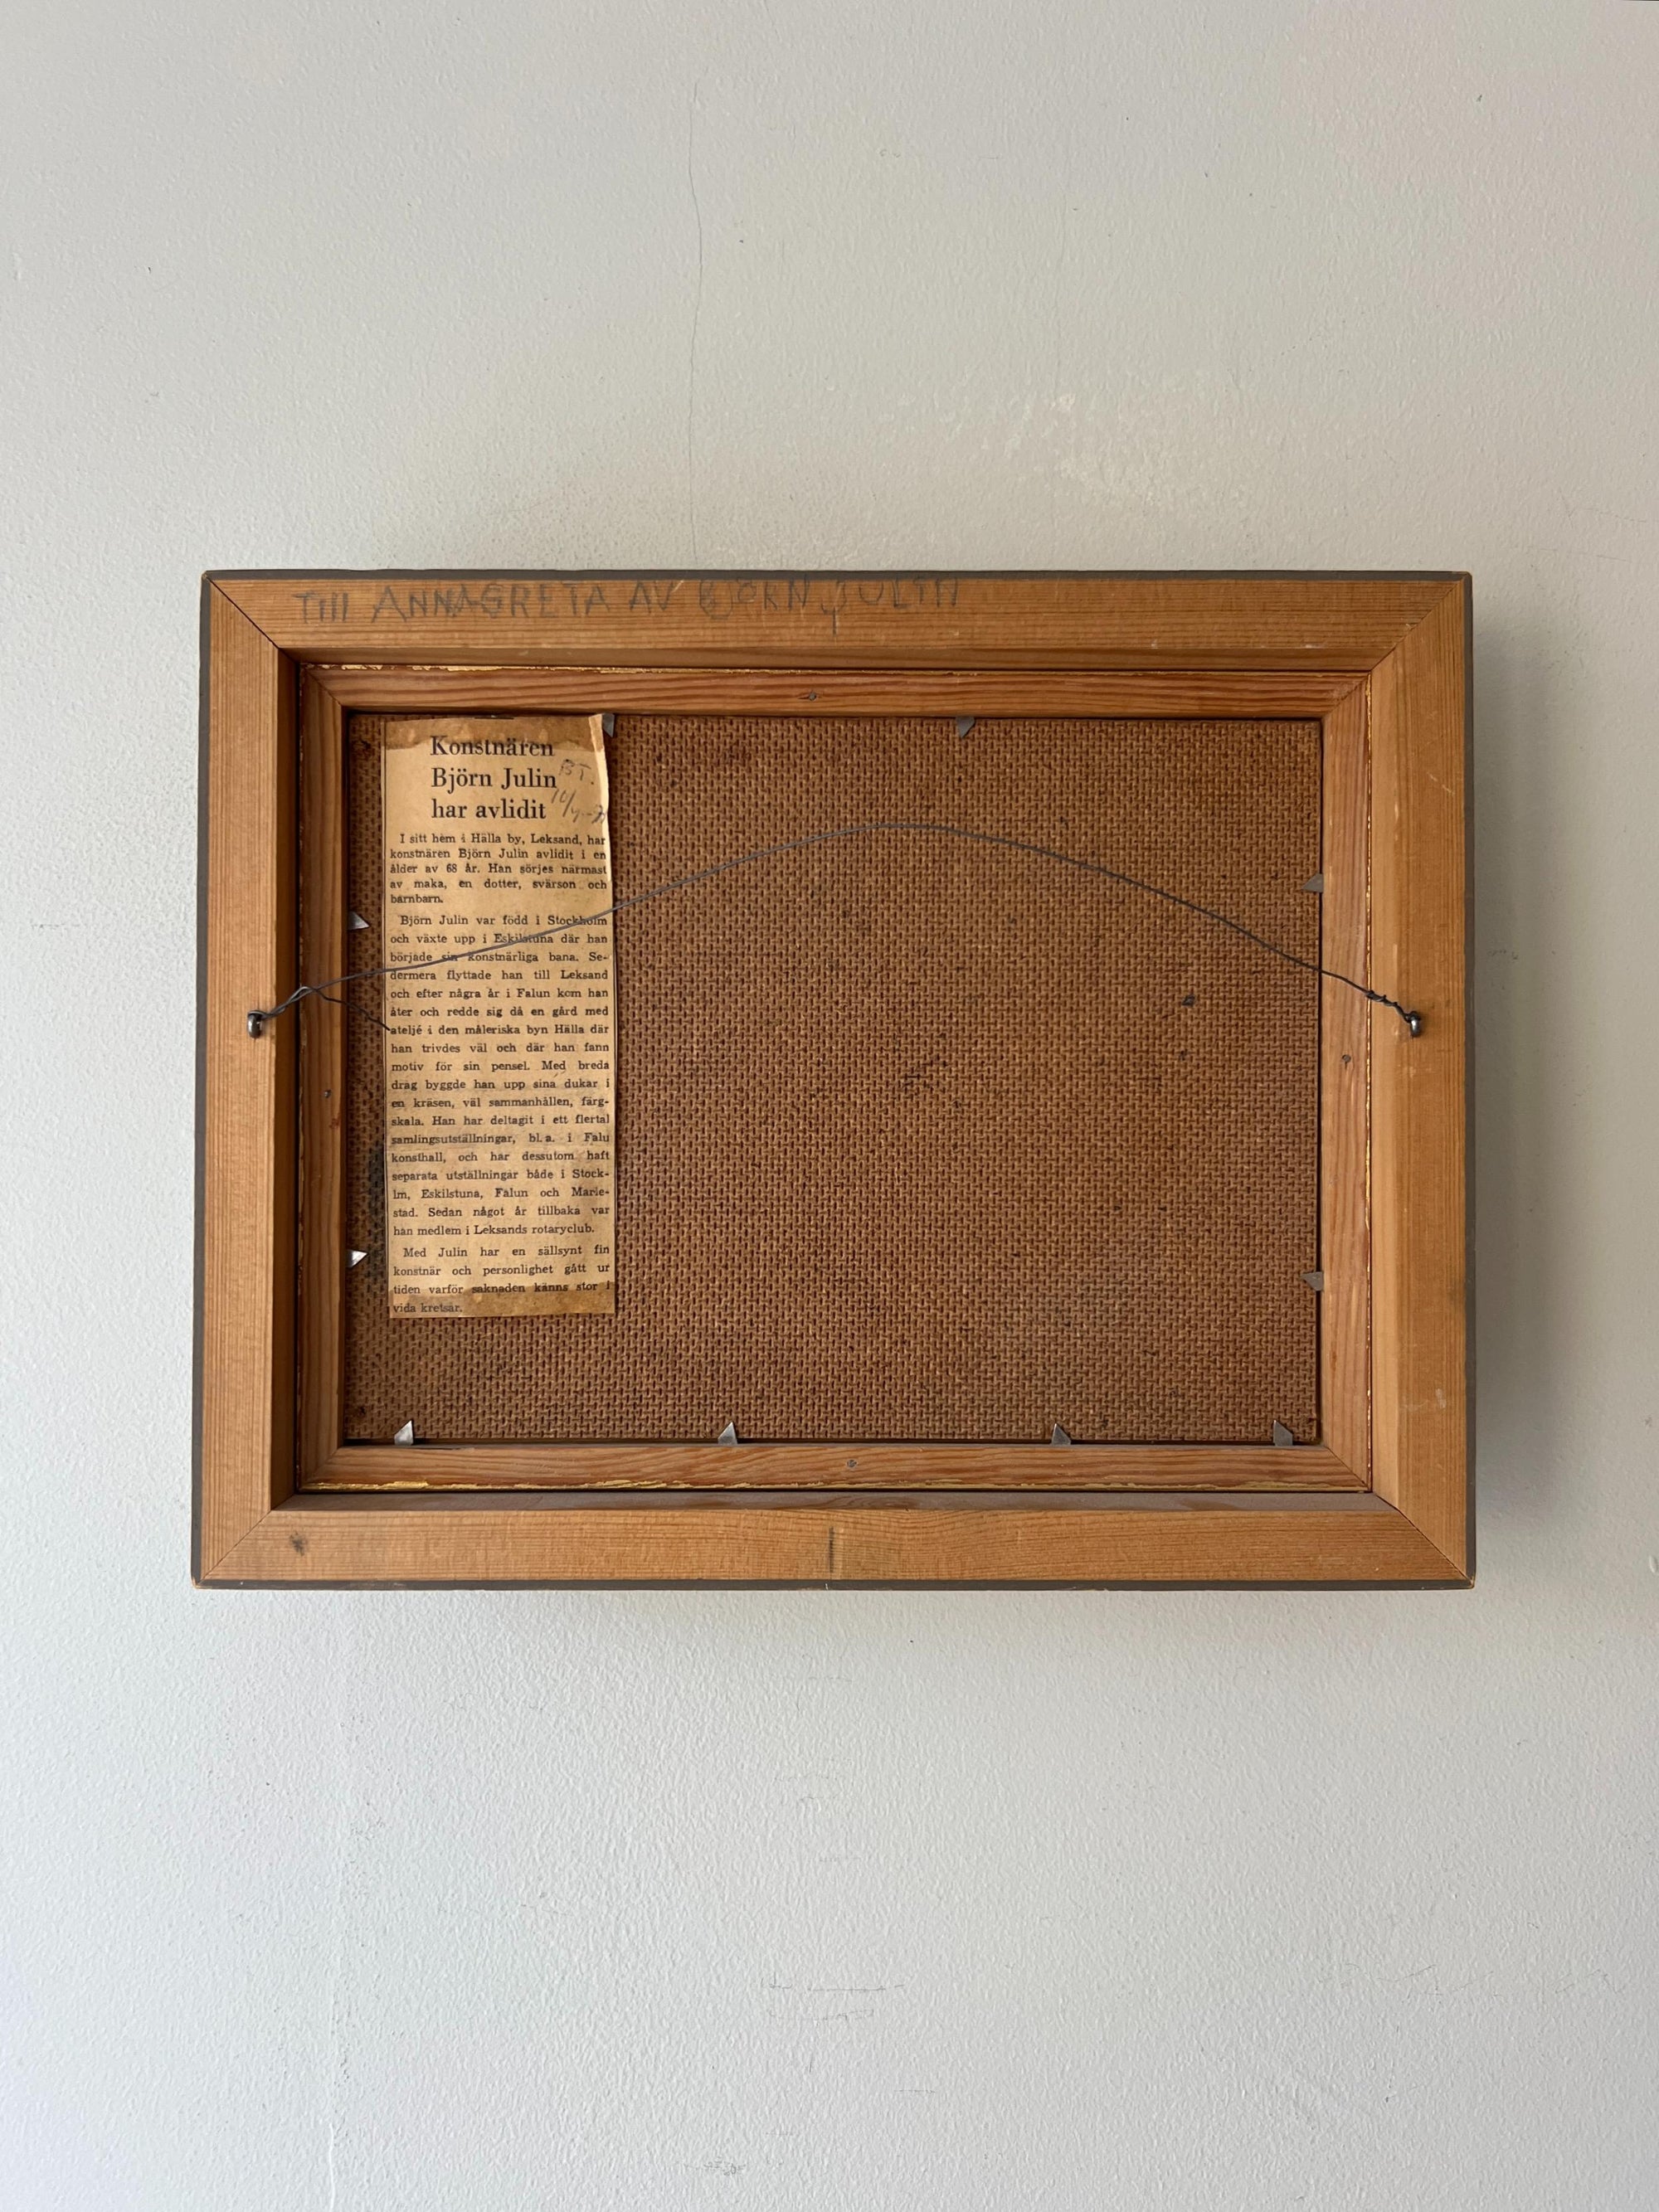 TIll ANNAGRETA AV BJÖRN JULIN
Konstnären
Björn Julin
har avlidit
BT.
I sitt hem i Hälla by, Leksand, har
konstnären Björn Julin avlidit i en
ålder av 68 år. Han sörjes närmast
av maka, en dotter, svärson och
barnbarn.
Björn Julin var född i Stockholm
och växte upp i Eskilstuna där han
började sin konstnärliga bana. Se-
dermera flyttade han till Leksand
och efter några år i Falun kom han
åter och redde sig då en gård med
ateljé i den måleriska byn Hälla där
han trivdes väl och där han fann
motiv för sin pensel. Med breda
drag byggde han upp sina dukar i
en kräsen, väl sammanhållen, färg-
skala. Han har deltagit i ett flertal
samlingsutställningar, bl. a. i Falu
konsthall, och har dessutom haft
separata utställningar både i Stock-
lm, Eskilstuna, Falun och Marie-
stad. Sedan något år tillbaka var
han medlem i Leksands rotaryclub.
Med Julin har en sällsynt fin
konstnär och personlighet gått ur
tiden varför saknaden känns stor i
vida kretsar.